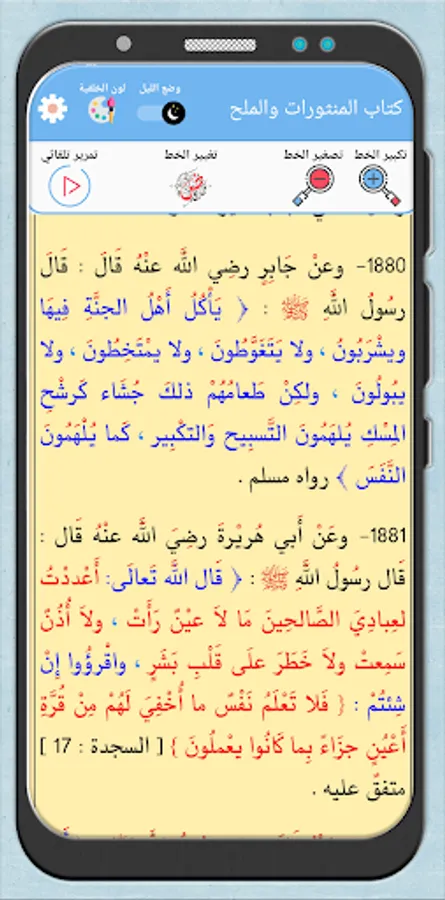 وضع الليل
لون الخلفية
كتاب المنثورات والملح
تكبير الخط
تصغير الخط
تغيير الخط
تمرير تلقائي
1880- وعنْ جَابِرٍ رضِي اللَّه عنْهُ قَالَ : قَالَ
رسُولُ اللَّهِ ﷺ : ﴿ يَأْكُلُ أَهْلُ الجنَّةِ فِيهَا
ويشْرَبُونَ ، ولا يَتَغَوَّطُونَ ، ولا يمْتَخِطُونَ ، ولا
يبُولُونَ ، ولكِنْ طَعامُهُمْ ذلكَ جُشَاء كَرشْحِ
المِسْكِ يُلهَمُونَ التَّسبِيح وَالتكْبِير ، كَما يُلْهَمُونَ
النَّفَسَ ﴾ رواه مسلم .
1881- وعَنْ أَبي هُريْرةَ رضِيَ اللَّه عنْهُ قَال :
قَال رسُولُ اللَّهِ ﷺ : ﴿ قَال اللَّه تَعالَى: أَعْددْتُ
لعِبادِيَ الصَّالحِينَ مَا لاَ عيْنٌ رَأَتْ ، ولاَ أُذُنٌ
سَمِعتْ ولاَ خَطَرَ علَى قَلْبِ بَشَرٍ ، واقْرؤُوا إِنْ
شِئتُمْ : { فَلا تَعْلَمُ نَفْسٌ ما أُخْفِيَ لَهُمْ مِنْ قُرَّةِ
أَعْيُنٍ جزَاءً بِما كَانُوا يعْملُونَ } [ السجدة : 17 ]
متفقٌ عليه .